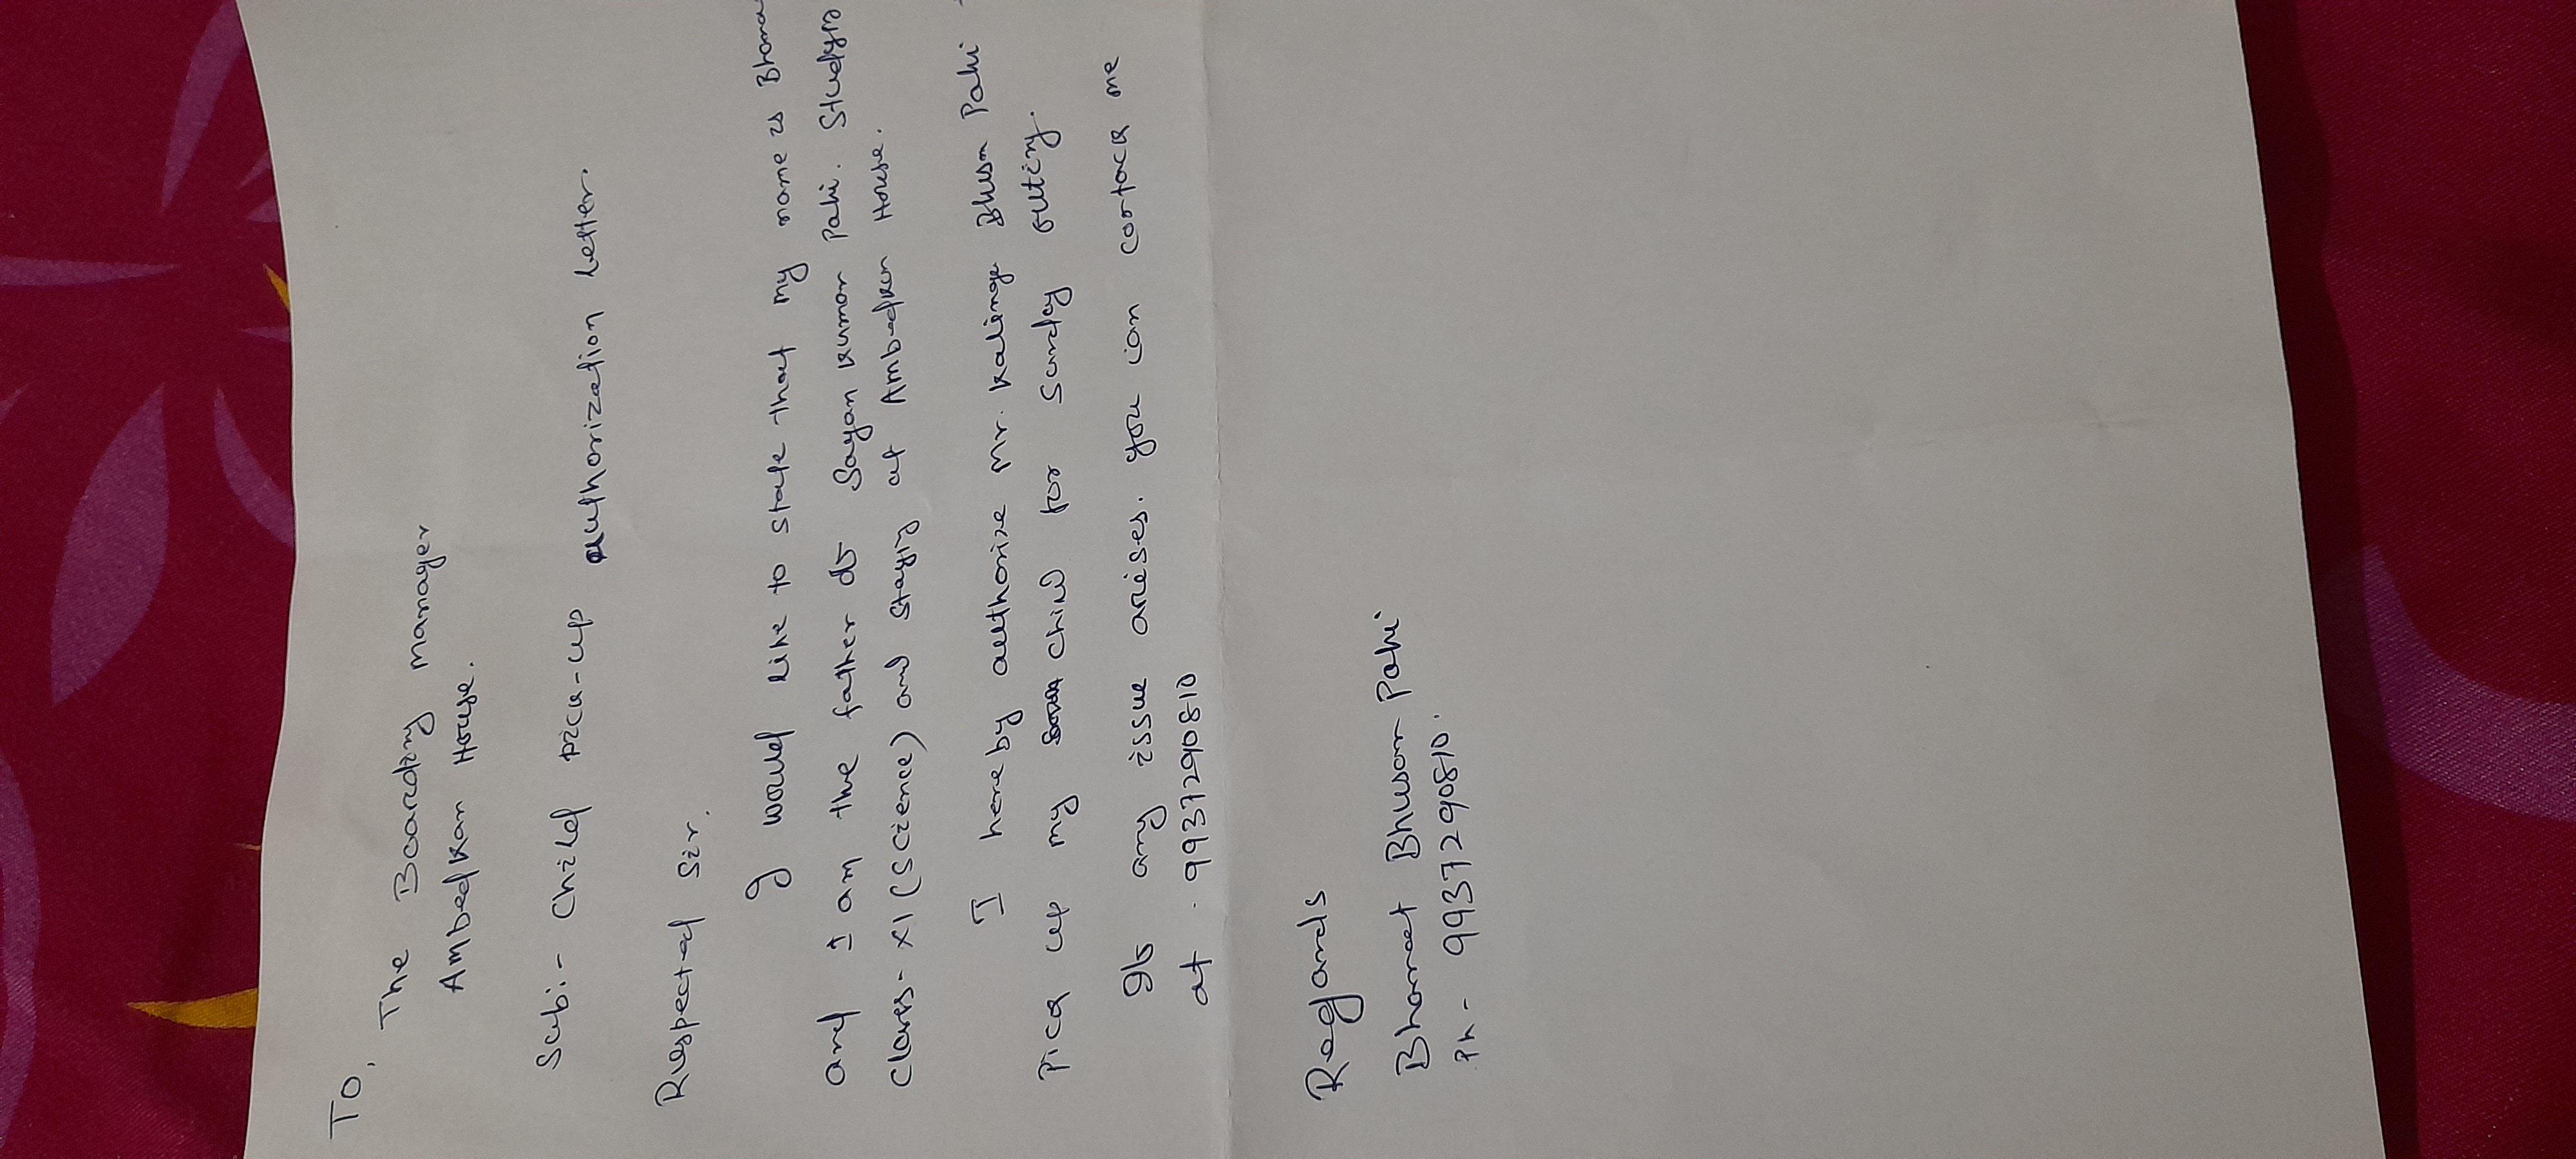 To,
The Boarding manager
Ambedkar House.
Sub:- Child pick-up authorization letter.
Respected Sir,
I would like to state that my name is
and I am the father of Sayan kumar Pahi. Studying
Class- XI (Science) and staying at Ambedkar House.
I hereby authorize Mr. Kalinga Bhusan Pahi
Pick up my child for Sunday outing.
If any issue arises. you can contact me
at. 9937290810
Regards
Bharat Bhusan Pahi
Ph- 9937290810.